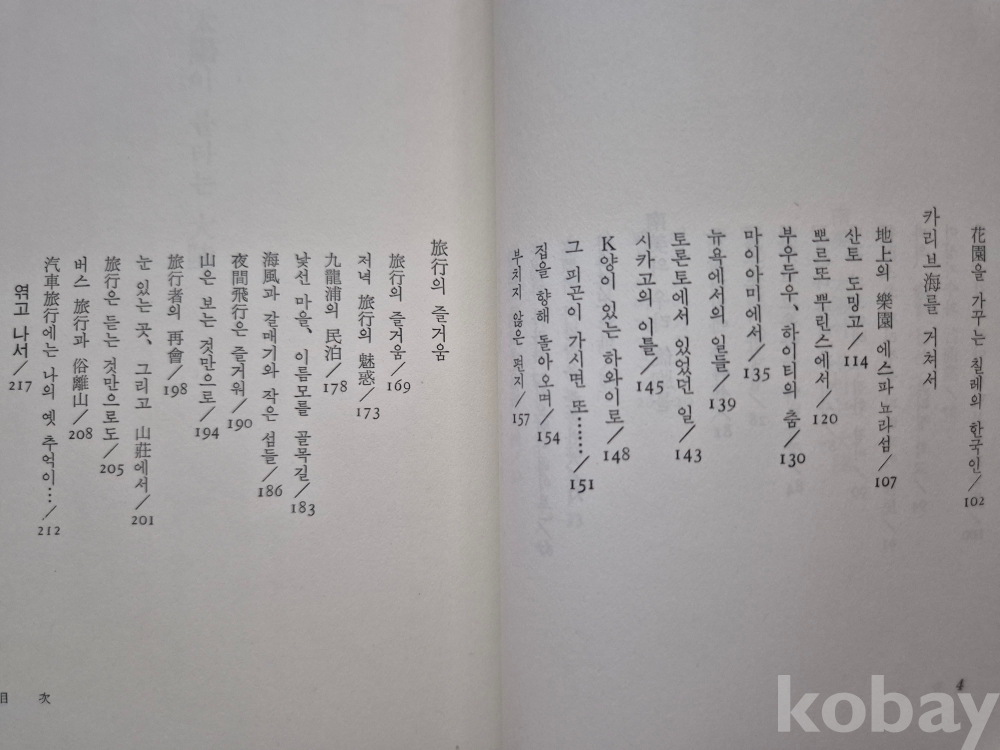 花園을 가꾸는 칠레의 한국인/102
카리브海를 거쳐서
地上의 樂園 에스파뇨라섬/107
산토 도밍고/114
뽀르또 뿌린스에서/120
부우두우, 하이티의 춤/130
마이아미에서/135
뉴욕에서의 일들/139
토론토에서 있었던 일/143
시카고의 이틀/145
K양이 있는 하와이로/148
그 피곤이 가시면 또……/151
집을 향해 돌아오며/154
부치지 않은 편지/157
4
旅行의 즐거움
旅行의 즐거움/169
저녁 旅行의 魅惑/173
九龍浦의 民泊/178
낯선 마을, 이름모를 골목길/183
海風과 갈매기와 작은 섬들/186
夜間飛行은 즐거워/190
山은 보는 것만으로/194
旅行者의 再會/198
눈 있는 곳, 그리고 山莊에서/201
旅行은 듣는 것만으로도/205
버스 旅行과 俗離山/208
汽車旅行에는 나의 옛 추억이…/212
엮고 나서/217
目 次
kobay